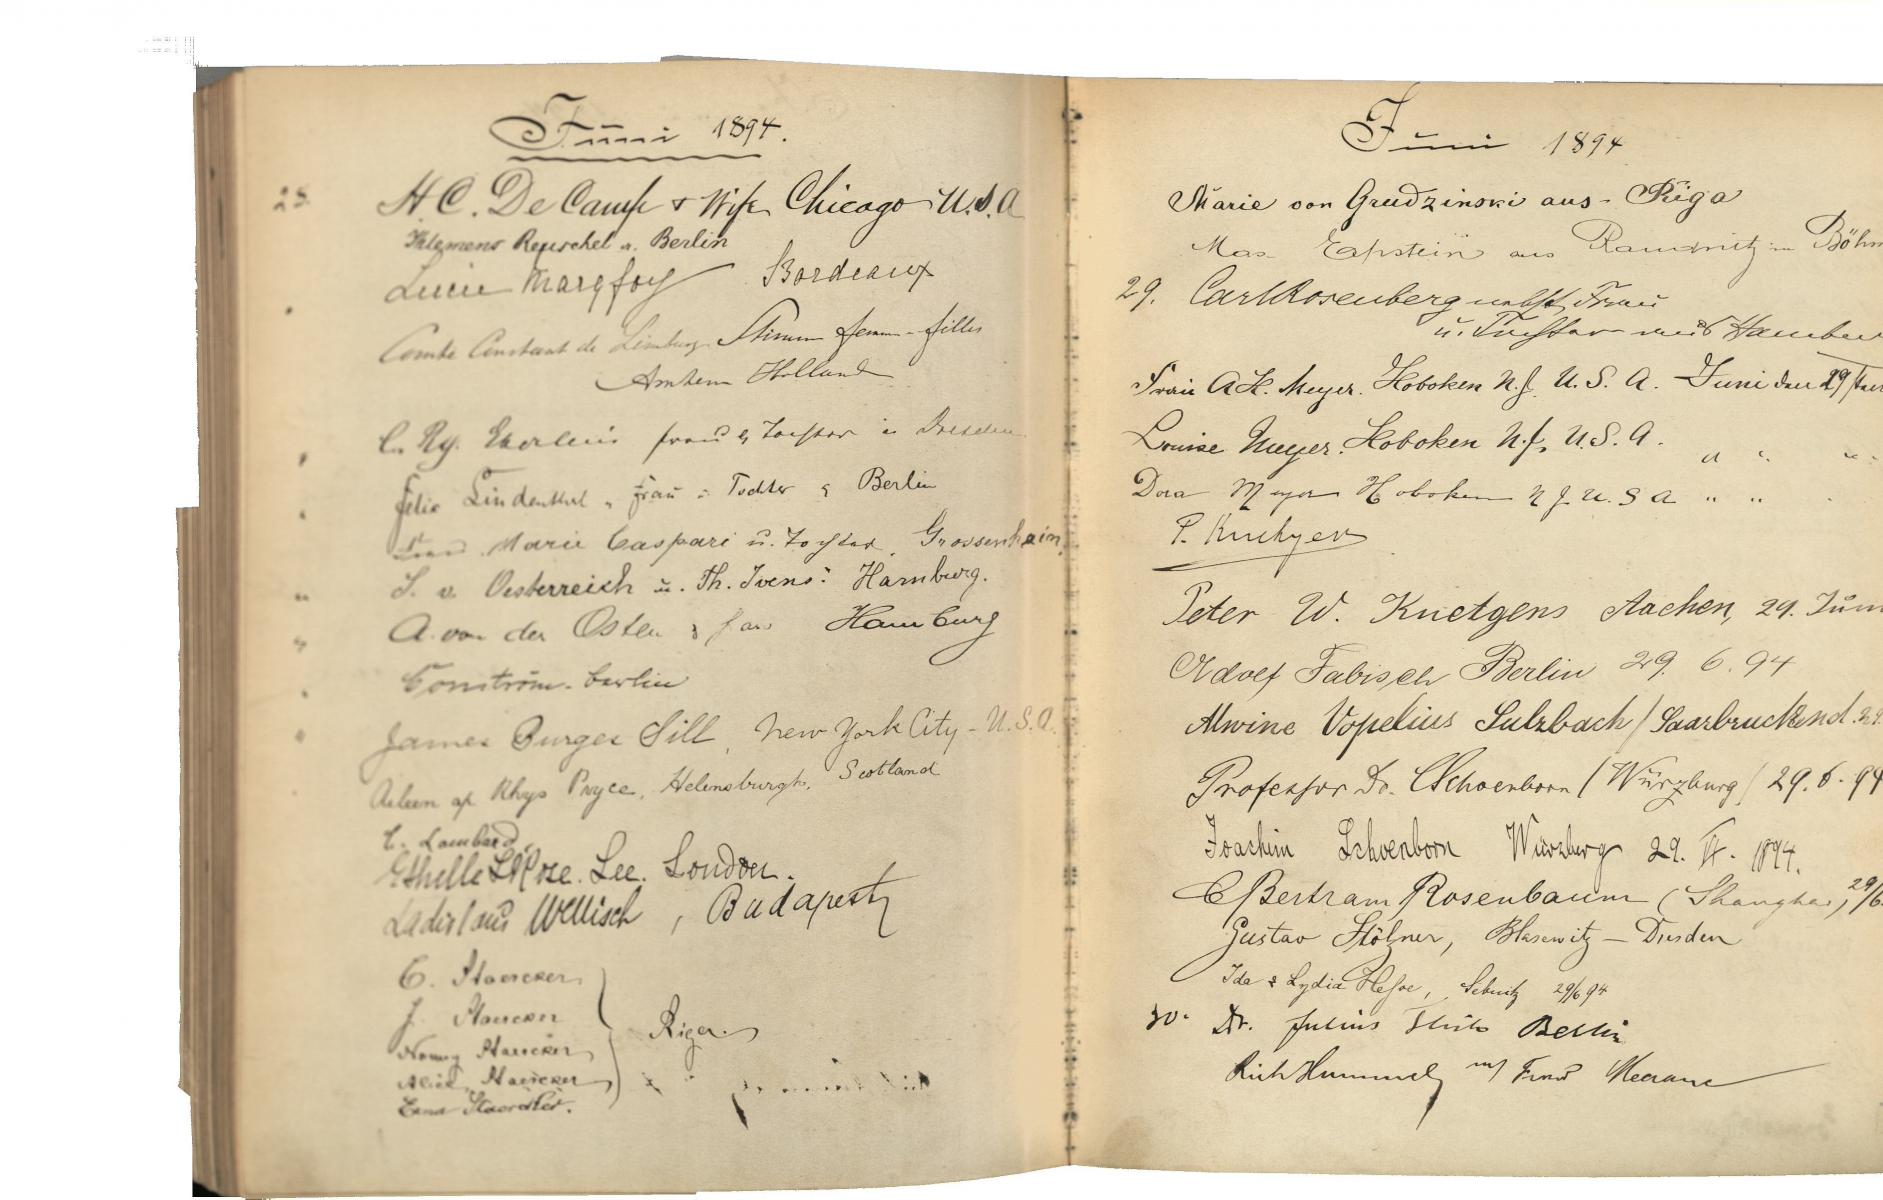 Juni 1894.
28. H. C. De Camp & Wife Chicago U.S.A
Klemens Reuschel a. Berlin
Lucie Margfoy Bordeaux
Comte Constant de Limburg Stirum femme filles
Arnhem Holland
frau & Tochter Dresden
Felix Lindenthal Frau Tochter Berlin
Frau Marie Caspari u. Tochter, Grossenhain
S. v. Oesterreich u. Th. Ivens: Hamburg.
A. von der Osten Hamburg
Berlin
James Burges Sill, New York City - U.S.A.
Aileen ap Rhys Pryce, Helensburgh, Scotland
E. Lombard.
Ethelle L. Rose. Lee. London.
Ladislaus Wellisch, Budapest
C. Staercker
J. Staercker
Nanny Staercker
Alice Staercker
Erna Staercker.
Riga
Juni 1894
Marie von Grudzinski aus - Riga
Max Epstein aus Raudnitz in Böhm
29. Carl Rosenberg nebst Frau
u. Tochter aus Hambur
Frau A. H. Meyer. Hoboken N.J. U.S.A. Juni den 29
Louise Meyer. Hoboken N.J. U.S.A. " " "
Dora Meyer Hoboken N J U. S A " "
P.
Peter W. Knetgens Aachen, 29. Juni
Adolf Fabisch Berlin 29. 6. 94
Alwine Vopelius Sulzbach / Saarbrucken d. 29.
Professor Dr. C Schoenborn / Würzburg / 29. 6. 94
Joachim Schoenborn Würzburg 29. VI. 1894.
C Bertram Rosenbaum (Shanghai, 29/6.
Gustav Stölzner, Blasewitz - Dresden
Ida & Lydia Hesse, Sebnitz 29/6 94
30. Dr. Julius Berlin
Rich Hummel m/ Frau Meerane